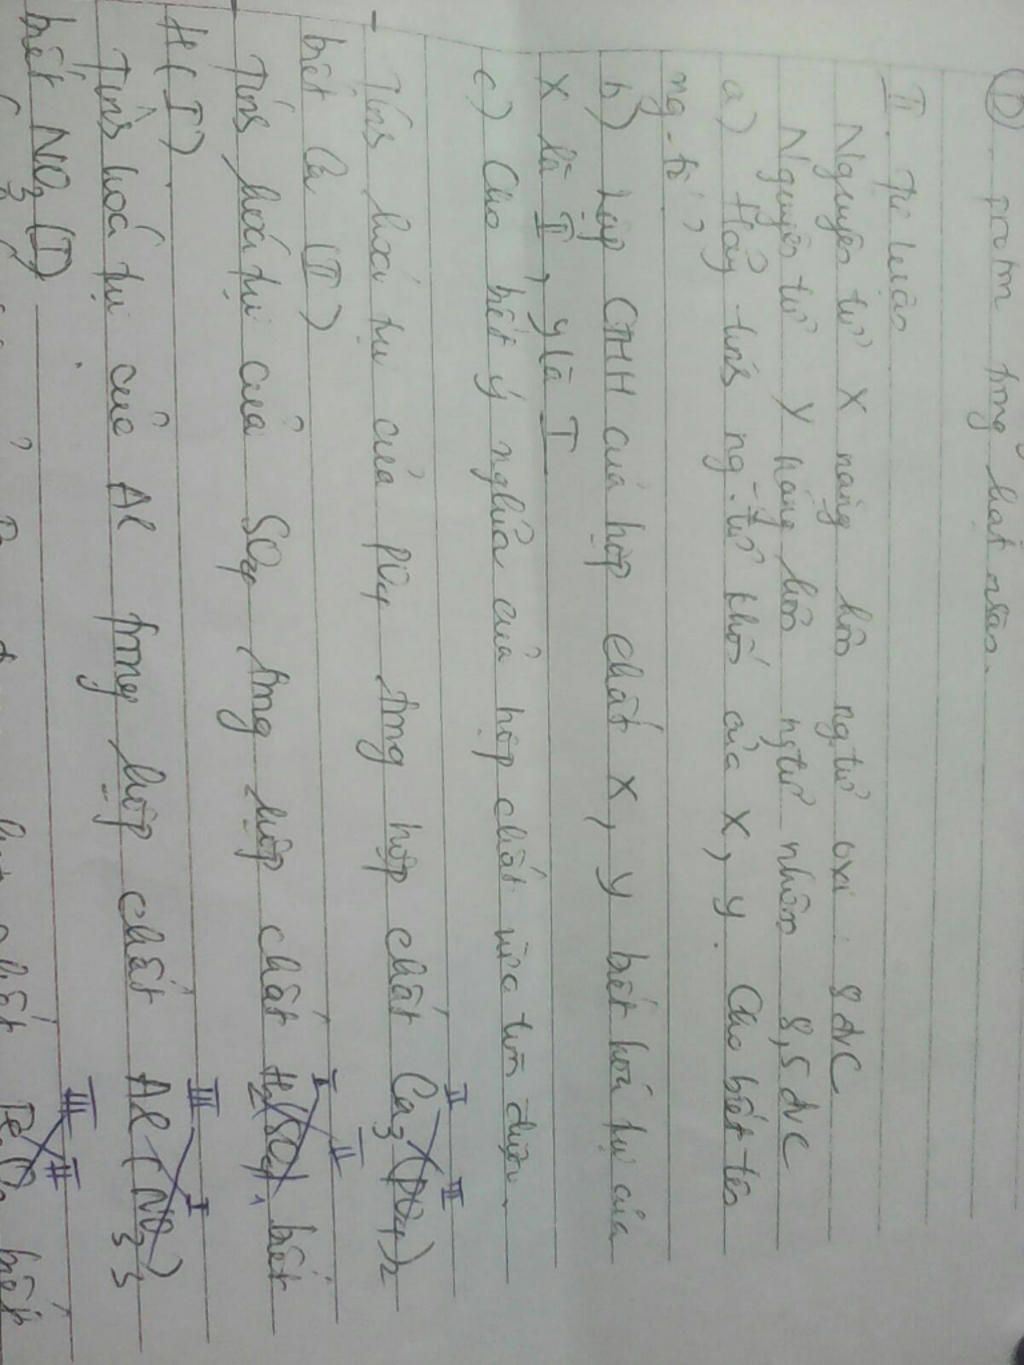 D. trong hạt nhân.
II. Tự luận
Nguyên tử X nặng hơn ng tử oxi : 8 đvC
Nguyên tử Y nặng hơn ng tử nhôm 8,5 đvC
a) Hãy tính ng-tử khối của X, y. Cho biết tên
ng-tố ?
b) Lập CTHH của hợp chất X, y biết hoá trị của
X là I, y là I
c) Cho biết ý nghĩa của hợp chất vừa tìm được.
II III
Tính hoá trị của PO4 trong hợp chất Ca3(PO4)2
biết Ca (II)
I II
Tính hoá trị của SO4 trong hợp chất H2(SO4)1 biết
H(I)
III I
Tính hoá trị của Al trong hợp chất Al(NO3)3
biết NO3 (I)
III II
biết